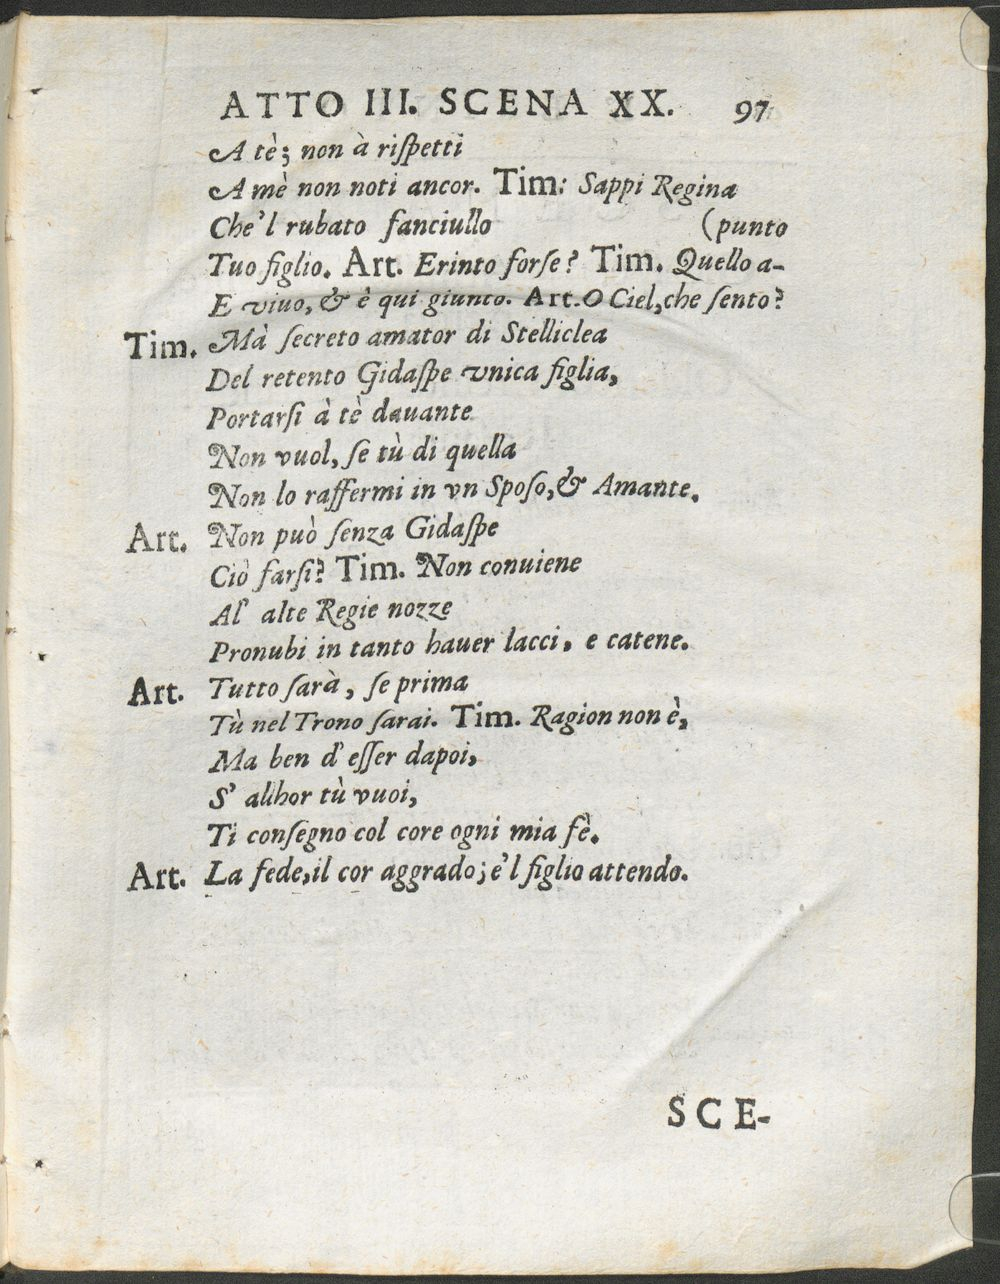 ATTO III. SCENA XX. 97
A tè; non à riſpetti
A mè non noti ancor. Tim: Sappi Regina
Che'l rubato fanciullo (punto
Tuo figlio. Art. Erinto forſe? Tim. Quello a-
E viuo, & è qui giunto. Art. O Ciel, che ſento?
Tim. Mà ſecreto amator di Stelliclea
Del retento Gidaſpe vnica figlia,
Portarſi à tè dauante
Non vuol, ſe tù di quella
Non lo raffermi in vn Spoſo, & Amante.
Art. Non può ſenza Gidaſpe
Ciò farſi? Tim. Non conuiene
Al' alte Regie nozze
Pronubi in tanto hauer lacci, e catene.
Art. Tutto ſarà, ſe prima
Tù nel Trono ſarai. Tim. Ragion non è,
Ma ben d' eſſer dapoi,
S' allhor tù vuoi,
Ti conſegno col core ogni mia fè.
Art. La fede, il cor aggrado; e'l figlio attendo.
SCE-